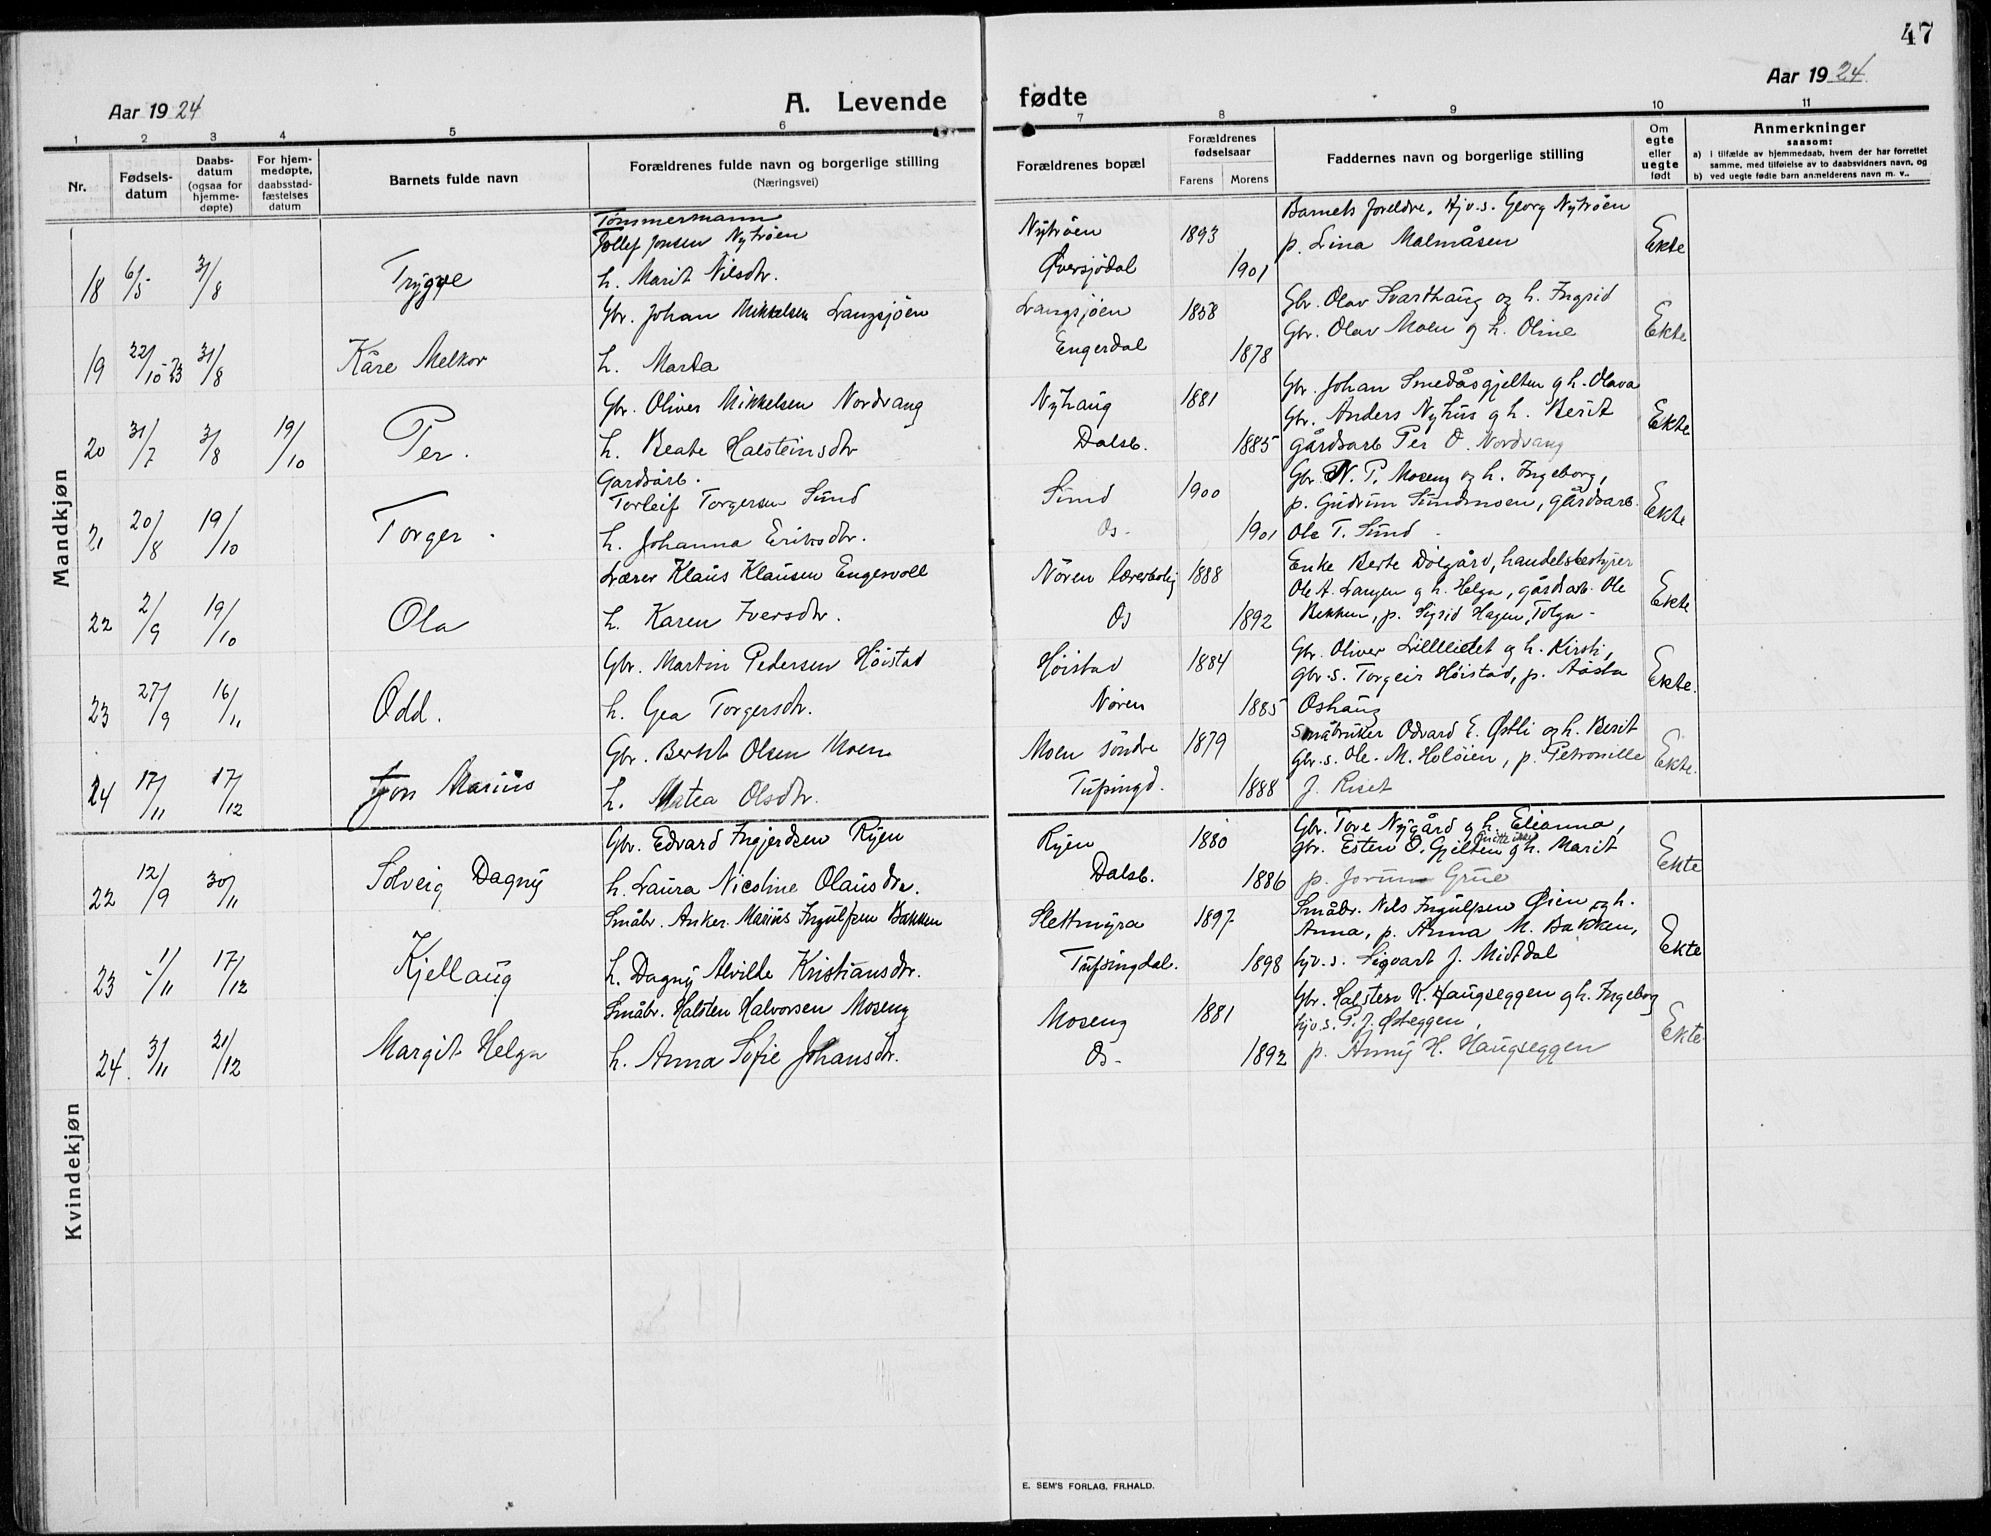 47
Aar 1924
A. Levende
fødte
Aar 1924
1 2 3 4 5 6 7 8 9 10 11
Nr.
Fødsels-
datum
Daabs-
datum
(ogsaa for
hjemme-
døpte)
For hjem-
medøpte,
daabsstad-
fæstelses
datum
Barnets fulde navn
Forældrenes fulde navn og borgerlige stilling
(Næringsvei)
Forældrenes bopæl
Forældrenes
fødselsaar
Farens Morens
Faddernes navn og borgerlige stilling
Om
egte
eller
uegte
født
Anmerkninger
saasom:
a) i tilfælde av hjemmedaab, hvem der har forrettet
samme, med tilføielse av to daabsvidners navn, og
b) ved uegte fødte barn anmelderens navn m. v..
Mandkjøn
Tømmermann
Jollef Jonsen Nytrøen Nytrøen 1893 Barnets foreldre, Hjv.s. Georg Nytrøen
18 6/5 31/8 Trygve h. Marit Nilsdtr. Øversjødal 1901 p. Lina Malmåsen Ekte
Gbr. Johan Mikkelsen Langsjøen Langsjøen 1858 Gbr. Olav Svarthaug og h. Ingrid
19 22/10-23 31/8 Kåre Melkor h. Marta Engerdal 1878 Gbr. Olav Moen og h. Oline Ekte
Gbr. Oliver Mikkelsen Nordvang Nyhaug 1881 Gbr. Johan Smedåsgjelten og h. Olava
Gbr. Anders Nyhus og h. Berit
20 31/7 3/8 19/10 Per. h. Beate Halsteinsdtr Dalsb. 1885 gårdsarb Per O. Nordvang Ekte
Gardsarb.
Torleif Torgersen Sund Sund 1900 Gbr. N. P. Moseng og h. Ingeborg,
p. Gudrun Sundmoen, gårdsarb.
21 20/8 19/10 Torger. h. Johanna Eriksdtr. Os. 1901 Ole T. Sund Ekte
Lærer Klaus Klausen Engesvoll Nøren lærerbolig 1888 Enke Berte Dølgård, handelsbestyrer
Ole A. Langen og h. Helga, gårdsarb. Ole
22 2/9 19/10 Ola h. Karen Iversdtr. Os 1892 Bekken, p. Sigrid Hagen, Tolga. Ekte
Gbr. Martin Pedersen Høistad Høistad 1884 Gbr. Oliver Lilleeidet og h. Kirsti,
Gbr.s. Torgeir Høistad, p. Aasta
23 27/9 16/11 Odd. h. Gea Torgersdtr. Nøren 1885 Oshaug Ekte.
Gbr. Bernt Olsen Moen Moen søndre 1879 Småbruker Odvard E. Østli og h. Berit
Gbr.s. Ole M. Holøien, p. Petronille
24 17/11 17/12 Jon Marius h. Matea Olsdtr. Tufsingd. 1888 J. Riset Ekte.
Kvindekjøn
Gbr. Edvard Ingjerdsen Ryen Ryen 1880 Gbr. Tore Nygård og h. Elianna,
Gbr. Esten O. Gjelten og h. Marit
22 12/9 30/11 Solveig Dagny h. Laura Nicoline Olausdtr. Dalsb. 1886 p. Jorun Grue Ekte
Småbr. Anker Marius Ingulfsen Bakken Slettmyra 1897 Småbr. Nils Ingulfsen Øien og h.
Anna, p. Anna M. Bakken,
23 1/11 17/12 Kjellaug h. Dagny Alvilde Kristiansdtr. Tufsingdal. 1898 hjv.s. Sigvart J. Midtdal Ekte
Småbr. Halsten Halvorsen Moseng Moseng 1881 Gbr. Halsten K. Haugseggen og h. Ingeborg
hjv.s. P. J. Østeggen,
24. 3/11 21/12 Margit Helga h. Anna Sofie Johansdtr. Os. 1892 p. Anny H. Haugseggen Ekte
E. SEM'S FORLAG, FR.HALD.